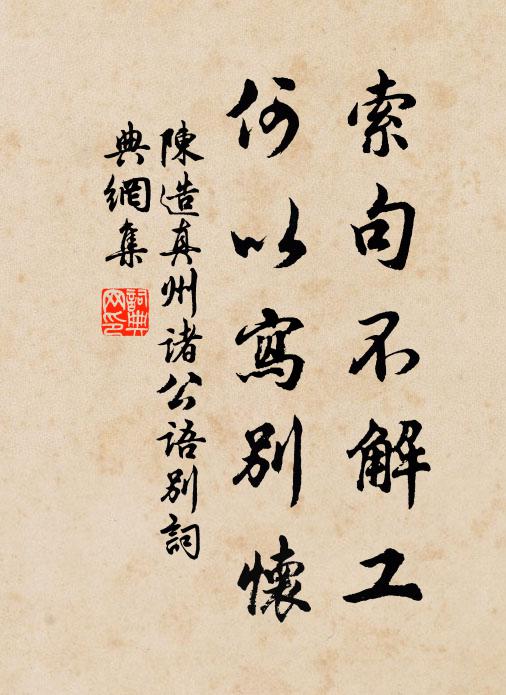 索句不解工
何以寫別懷
陳造真州諸公語別詞
典網集
詞典
网印